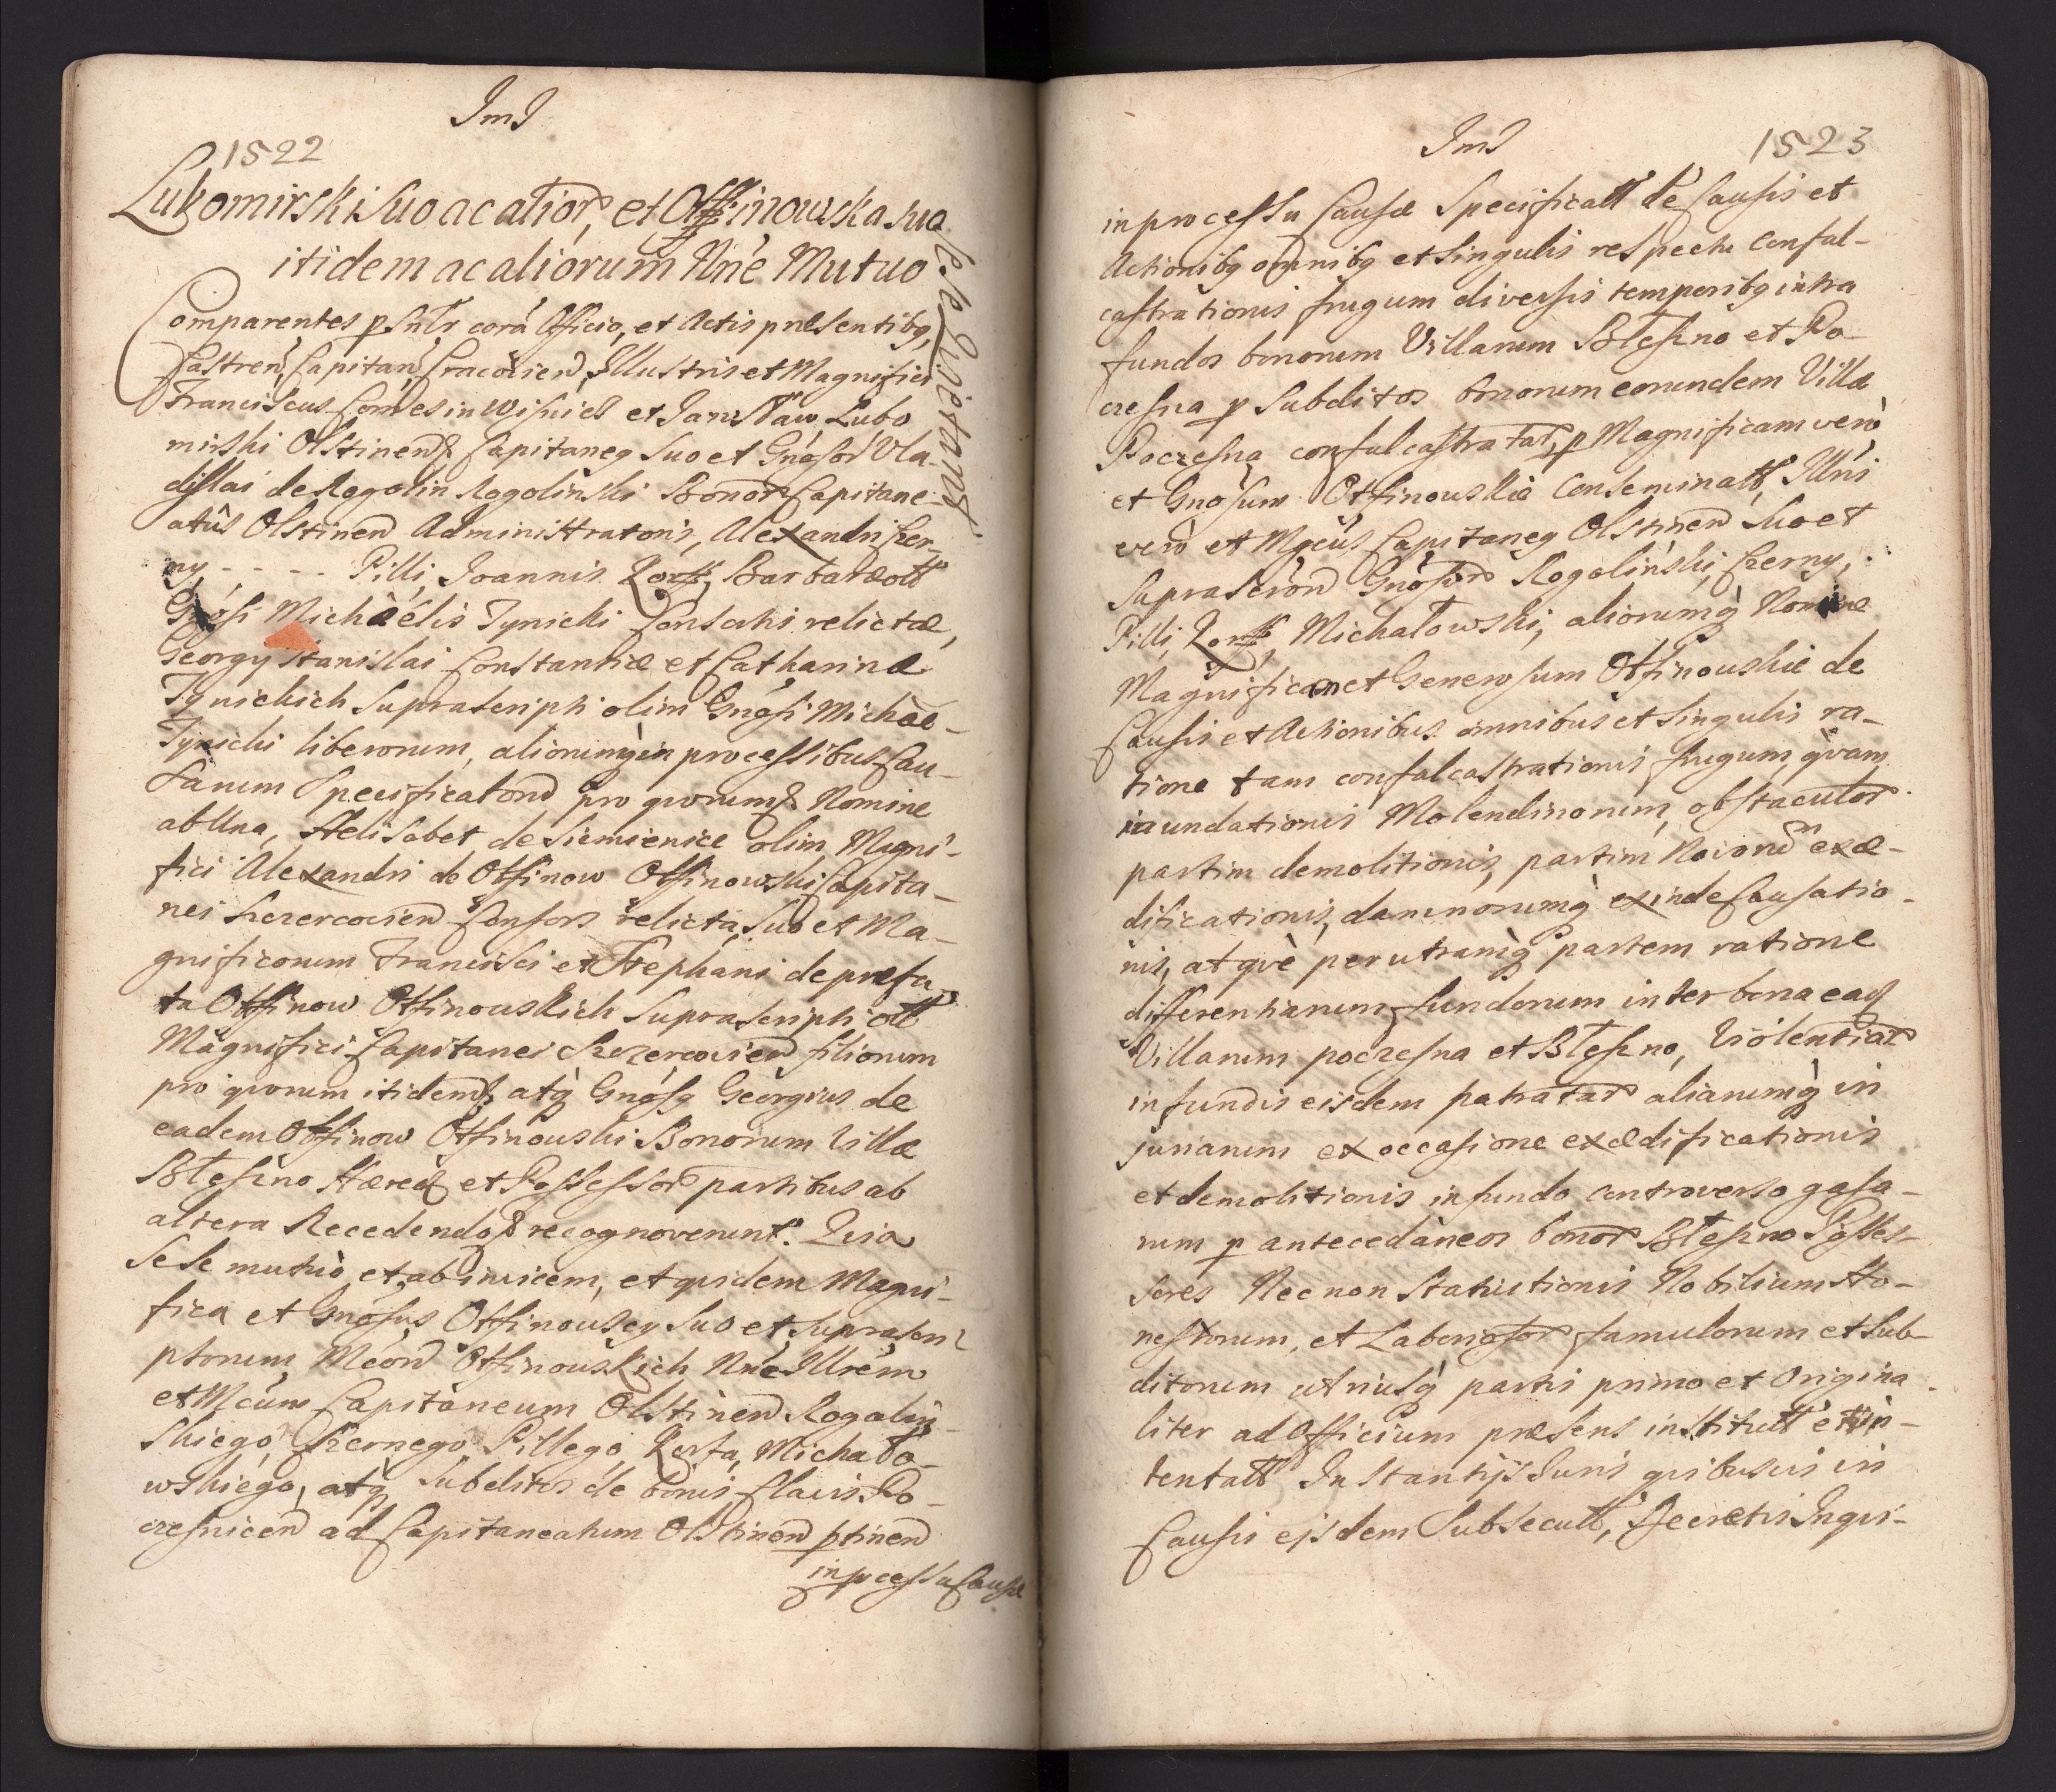 JmJ
1522
Lubomirski suo ac alior, et Otffinowska suo
itidem ac aliorum Nne Mutuo
sese quietant
Comparentes p snlr corá Officio, et Actis præsentibq,
Castren, Capitan, Cracovien, Illustris et Magnifici
Franciscus Comes in Wisnicz et Jarosław Lubo
mirski Olstinen Capitaneq suo et Gnósor Vla-
dislai de Rogolin Rogolinski Bonor Capitane-
atûs Olstinen Administratoris, Alexandri Czer-
ny, - - - - Pilli, Joannis Korff, Barbaræ
Gnósi Michàélis Tynicki Consortis relictæ,
Georgy Stanislai Constantiæ et Catharinæ
Tynickich suprascripti olim Gnósi Michàe-
Tynicki liberorum, aliorumq in processibus Cau-
sarum Specificatord pro quorum Nomine
ab Una, Helisabet de Siemienice olim Magni-
fici Alexandri de Otfinow Otfinowski Capita-
nei Szczercovien Consors relicta, suo et Ma-
gnificorum Francisci et Stephani de præfa
ta Otffinow Otfinouskich suprascripti
Magnifici Capitanei Szczercovien filiorum
pro quorum itidem atq Gnósq Géorgius de
eadem Otffinow Otfinouski Bonorum Villæ
Błeszno Hæres et Possessor partibus ab
altera Recedendo recognoverunt. Quia
sese mutuò et ab invicem, et quidem Magni-
fica et Gnósus Otfinouscy suo et suprascri
ptorum Mcord Otfinouskich Nne Illrem
et Mcum Capitàneum Olstinen Rogoliń
skiego, Czernego Pillego, Korfa, Michało-
wskiégo, atq subditos de bonis Clavis Po-
czesnicen ad Capitaneatum Olstinen ptinen
in pcessu Causæ
JmJ
1523
in processu Causæ Specificatt de Causis et
Actionibq omnibq et singulis respectu confal-
castrationis frugum diversis temporibq intra
fundos bonorum Villarum Błeszno et Po-
czesna p subditos bonorum eorundem Villæ
Poczesna confalcastratar, p Magnificam verò
et Gnosum Otfinouskie Conseminatt, Illris
verò et Mgcus Capitaneq Olstinen suo et
suprascrord Gnósord Rogolinski, Czerny,
Pilli, Korff, Michałowski, aliorumq Nomine
Magnificam et Generosum Otfinouskie de
Causis et Actionibus omnibus et singulis ra-
tione tam confalcastrationis frugum, qvam
inundationis Molendinorum, obstaculor
partim demolitionis, partim Noviord exæ-
dificationis, damnorumq exinde Causatio-
nis, atqvè per utramq partem ratione
differentiarum fundorum inter bona eaq
Villarum poczesna et Błeszno, Violentiar
in fundis eisdem patratar aliarumq in
juriarum ex occasione exædificationis
et demolitionis in fundo controverso gasa-
rum p antecedàneos bonor Błeszno Posses-
sores Nec non Statuitionis Nobilium Ho-
nestorum, et Laboriosor famulorum et sub-
ditorum utriusq partis primo et Origina-
liter ad Officium præsens institutt et in-
tentatt Instantijs Juris quibusvis in
Causis ejsdem subsecutt, Decretis Inqui-